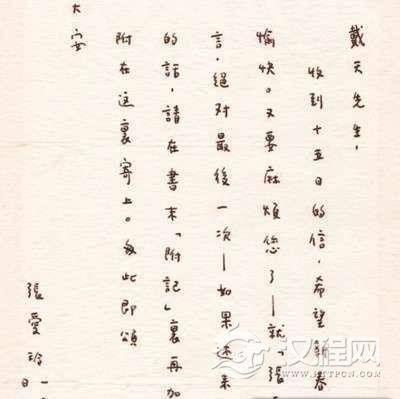 戴天先生,
收到十五日的信,希望新春
愉快。又要麻煩您了—就「張
言,絕对最後一次—如果还来
的話,請在書末「附記」裏再加
附在這裏寄上。匆此即頌
大安
張愛玲 一
日
汉程网
HTTPCN.COM